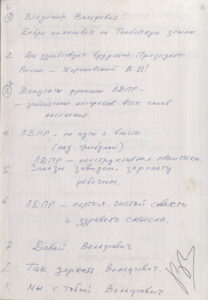 ① Владимир Вольфович!
Добро пожаловать на Тамбовскую землю.
2. Да здравствует будущий Президент
России – Жириновский В.В!
③ Депутаты фракции ЛДПР –
– защитники интересов всех слоев
населения.
4 ЛДПР – на пути к власти
(под трибуной)
ЛДПР – конструктивная политика.
5. заводам – зарплату
рабочим.
6. ЛДПР – партия чистой совести
и здравого смысла.
7 Давай Вольфович
8. Так держать Вольфович.
9. Мы с тобой Вольфович